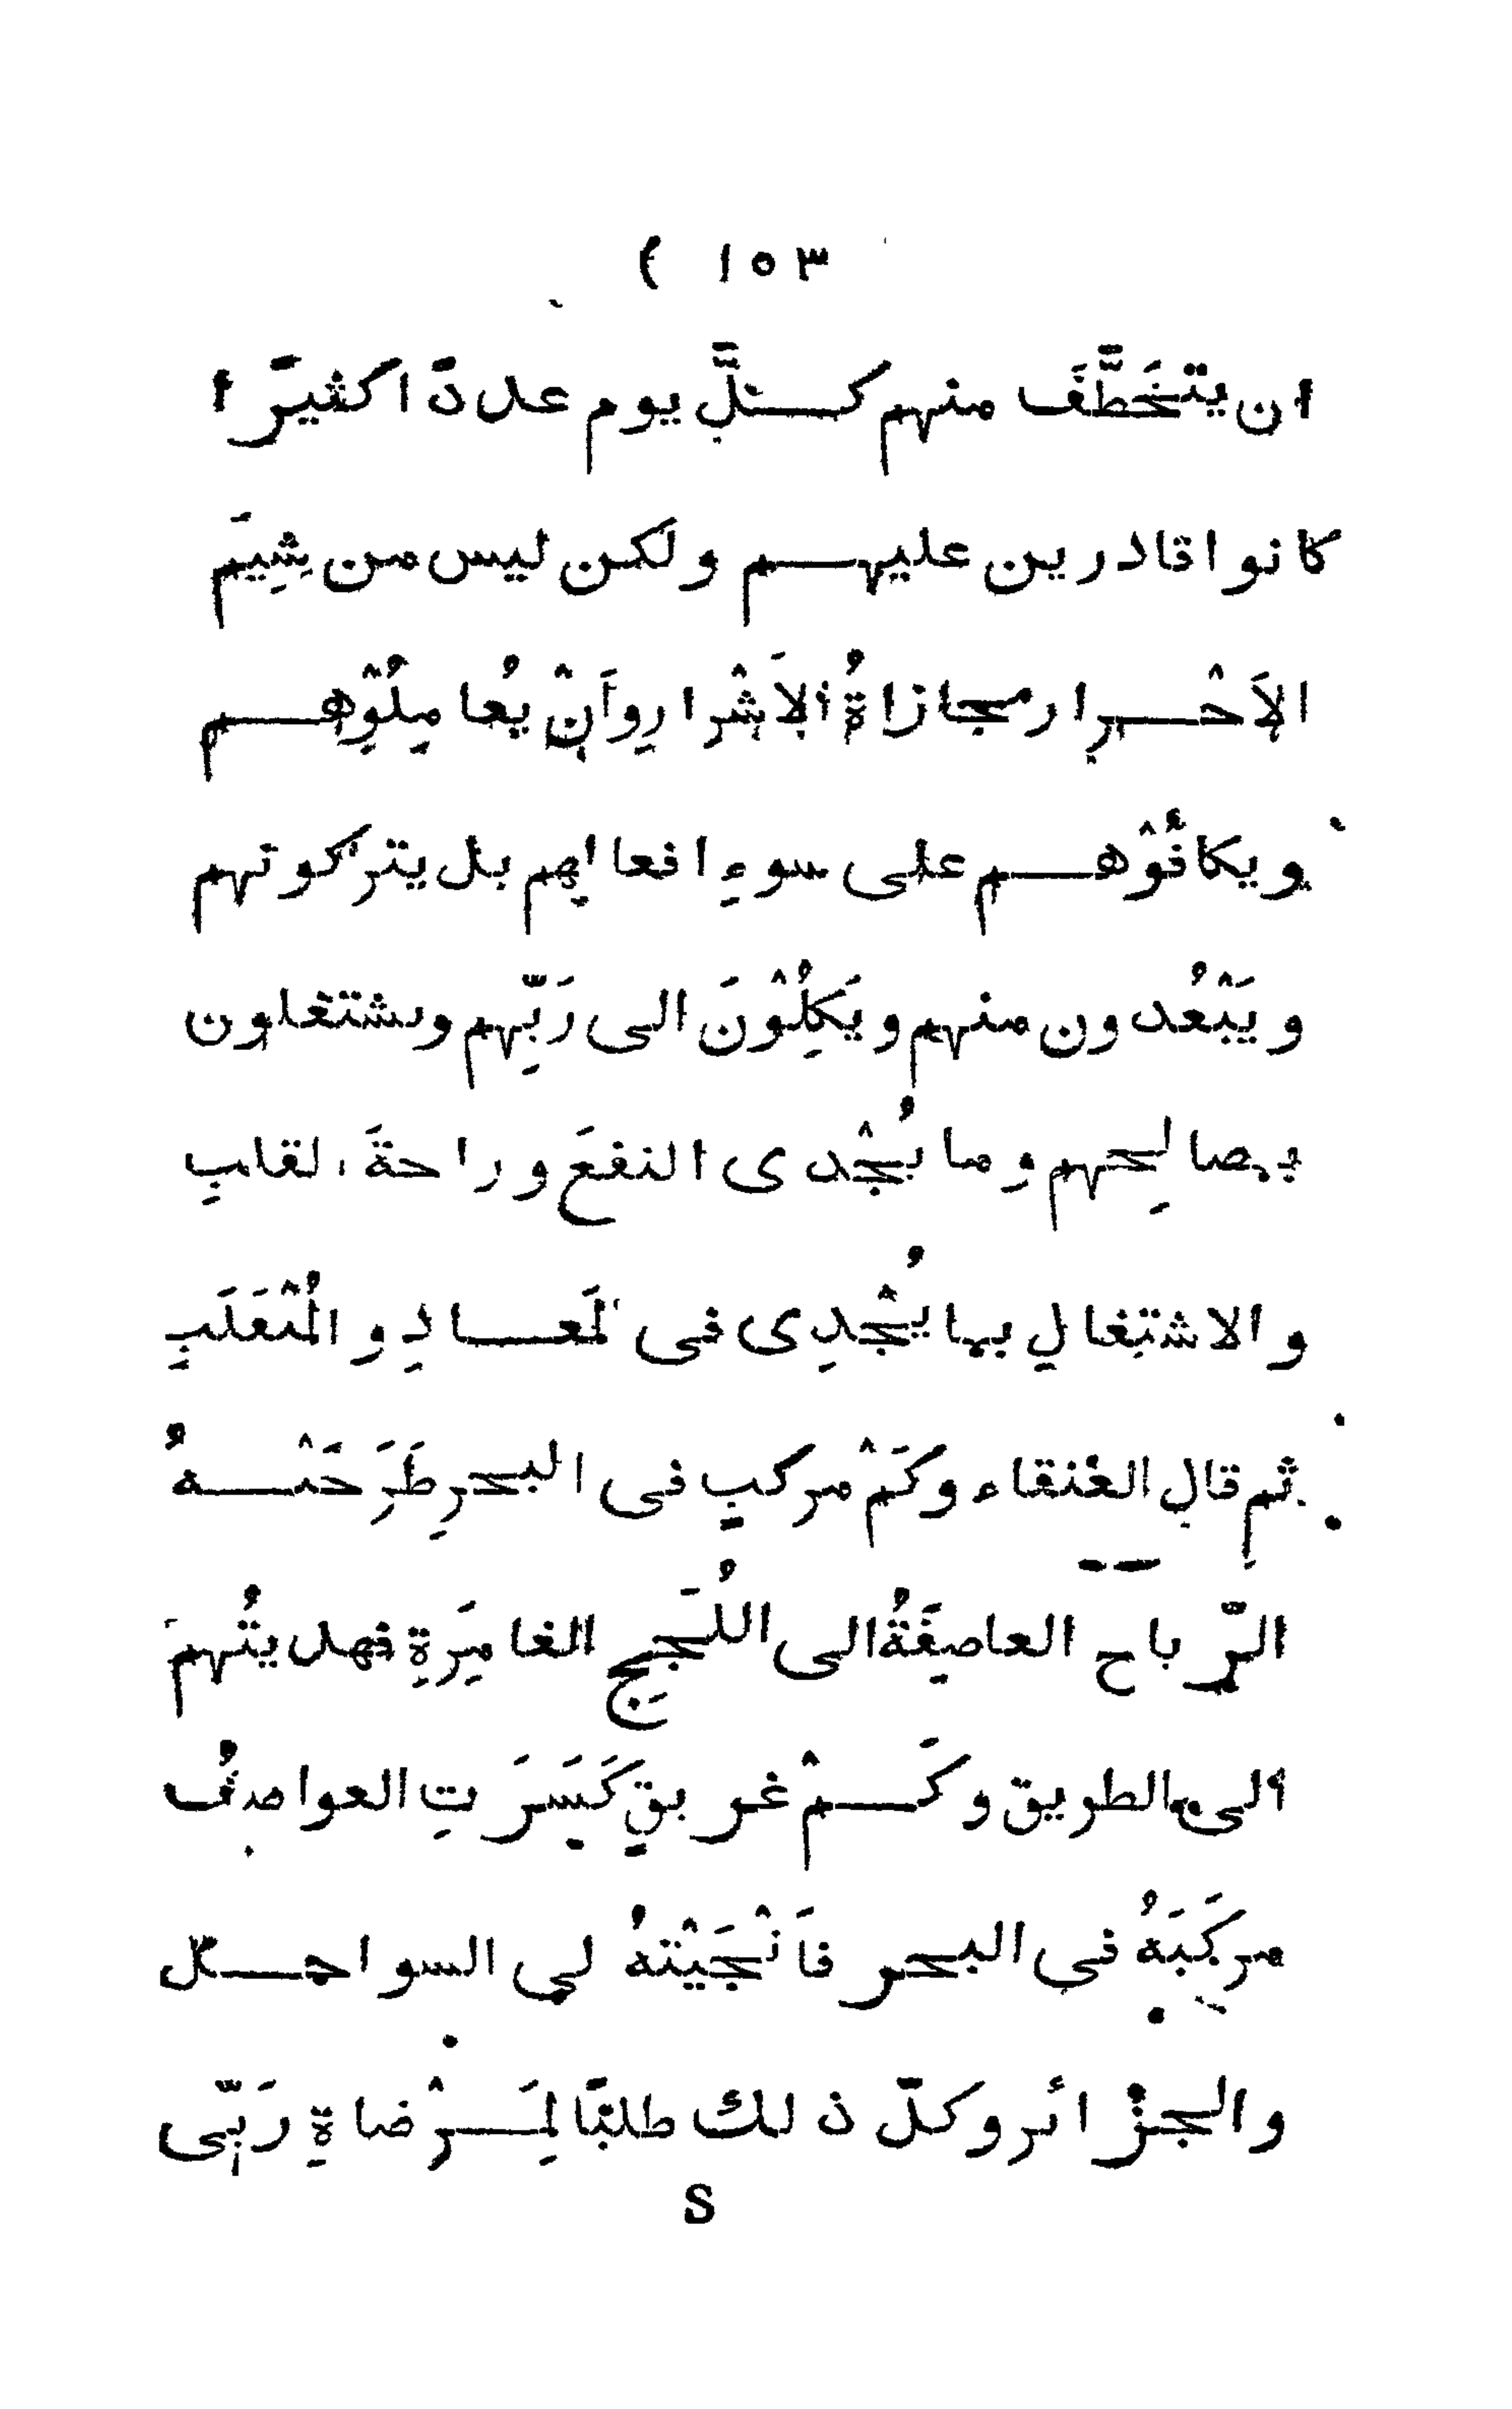 ١٥٣ )
ان يتخَطَّفَ منهم كلَّ يوم عددًا كثيرًا
كانوا قادرين عليهم ولكن ليس من شِيَم
الاَحْرارِ مجازاةُ الاَشْرارِ واَنْ يُعامِلُوْهم
ويكافُوْهم على سوءِ افعالِهم بل يتركونهم
ويَبْعُدون منهم ويَكِلُوْنَ الى رَبِّهم ويشتغلون
بمصالِحهم وما يُجْدى النفعَ وراحةَ القلبِ
والاشتغالِ بما يُجْدِى فى المَعادِ والمُنْقَلَبِ
ثم قال العُنقاء وكَمْ مركبٍ فى البحرِ طَرَحَتْهُ
الرّياح العاصِفَةُ الى اللُجَجِ الغامِرَةِ فهديتُهمَ
الى الطريق وكَمْ غريقٍ كَسَرَتِ العواصفُ
مركَبَهُ فى البحر فاَنْجَيْتهُ لى السواحل
والجزْائر وكلّ ذلك طلبًا لِمَرْضاةِ رَبّى
S